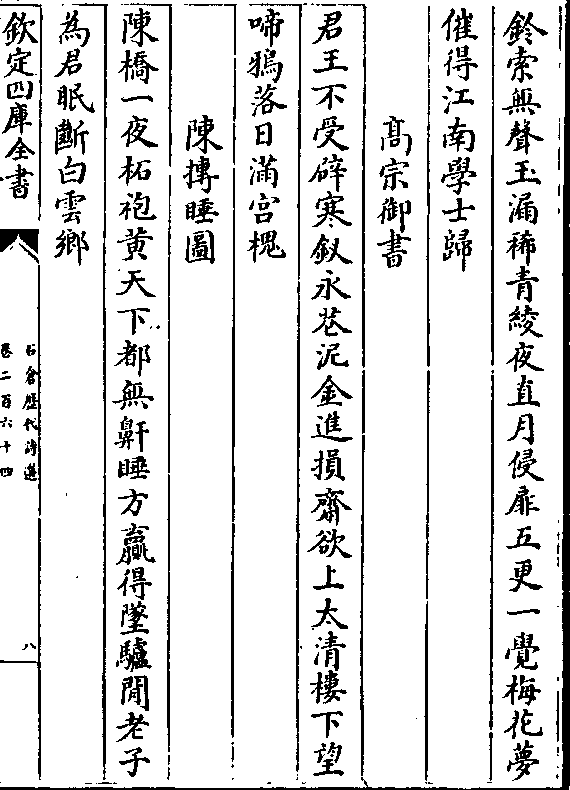 鈴索無聲玉漏稀青綾夜直月侵扉五更一覺梅花夢
催得江南學士歸
高宗御書
君王不受辟寒釵永巷泥金進損齋欲上太清樓下望
啼鴉落日滿宮槐
陳摶睡圖
陳橋一夜柘袍黃天下都無鼾睡方贏得墜驢閒老子
為君眠斷白雲鄉
欽定四庫全書
石倉歷代詩選
卷二百六十四
八